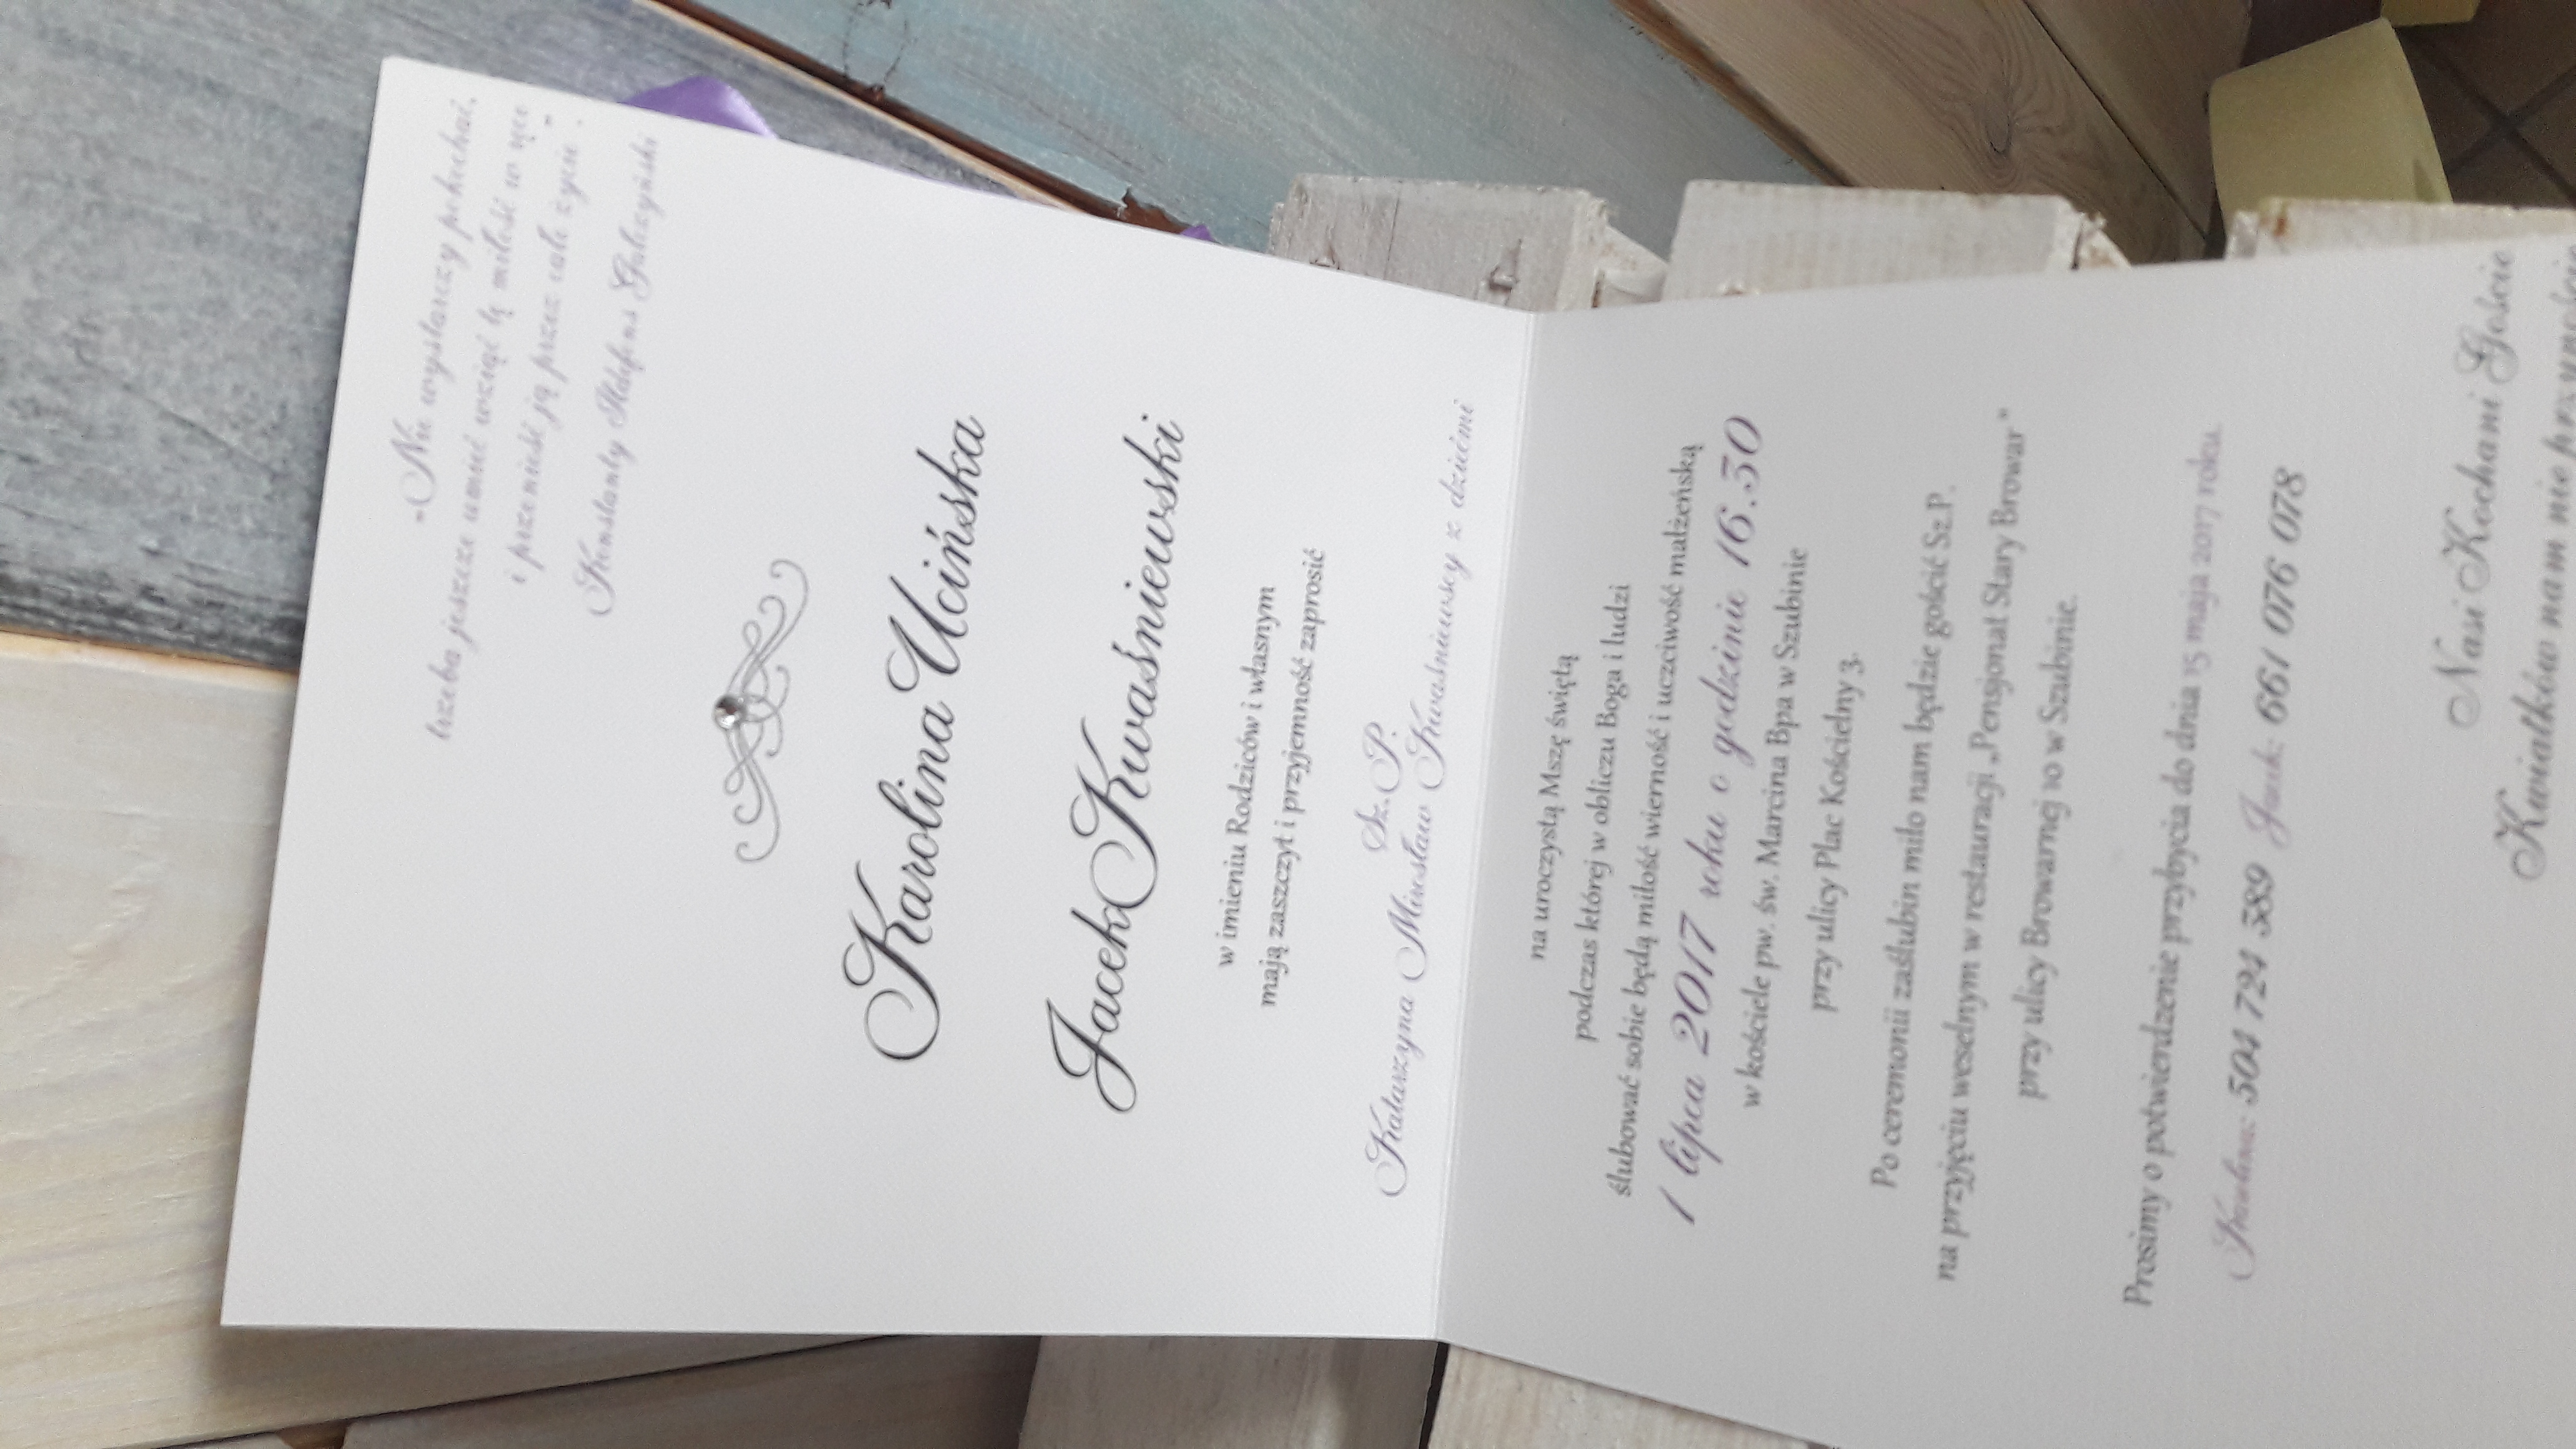 „Nie wystarczy pokochać,
trzeba jeszcze umieć wziąć tę miłość w ręce
i przenieść ją przez całe życie".
Konstanty Ildefons Gałczyński
Karolina Ucińska
Jacek Kwaśniewski
w imieniu Rodziców i własnym
mają zaszczyt i przyjemność zaprosić
Sz.P.
Katarzyna Mirosław Kwaśniewscy z dziećmi
na uroczystą Mszę świętą
podczas której w obliczu Boga i ludzi
ślubować sobie będą miłość wierność i uczciwość małżeńską
1 lipca 2017 roku o godzinie 16.30
w kościele pw. św. Marcina Bpa w Szubinie
przy ulicy Plac Kościelny 3.
Po ceremonii zaślubin miło nam będzie gościć Sz.P.
na przyjęciu weselnym w restauracji „Pensjonat Stary Browar"
przy ulicy Browarnej 10 w Szubinie.
Prosimy o potwierdzenie przybycia do dnia 15 maja 2017 roku.
Karolina: 504 724 389 Jacek: 661 076 078
Nasi Kochani Goście
Kwiatków nam nie przynoście